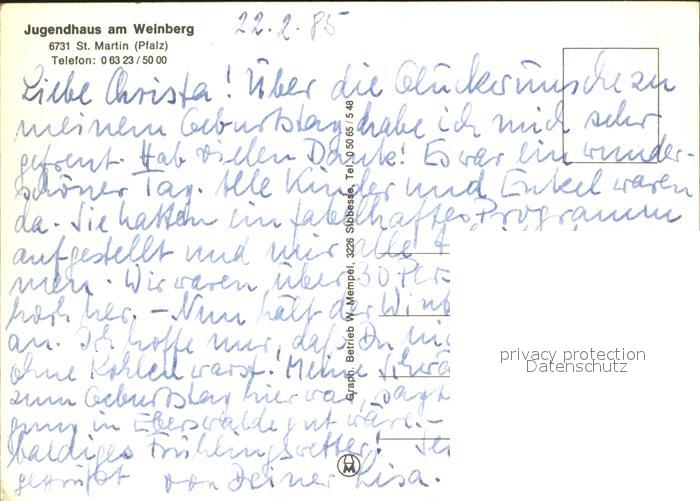 Jugendhaus am Weinberg
6731 St. Martin (Pfalz)
Telefon: 0 63 23 / 50 00
22.2.85
Liebe Christa! Über die Glückwünsche zu
meinem Geburtstag habe ich mich sehr
gefreut. Hab vielen Dank! Es war ein wunder-
schöner Tag. Alle Kinder und Enkel waren
da. Sie hatten ein fabelhaftes Programm
aufgestellt und mir alle
men. Wir waren über 30 Per
hoch her. - Nun hält der Wint
an. Ich hoffe nur, daß Du nic
ohne Kohlen warst. Meine Schwä
zum Geburtstag hier war, sagt
gung in Eberswalde gut wäre. -
baldiges Frühlingswetter! Sei
gegrüßt von Deiner Lisa.
Graph. Betrieb W. Mempel, 3226 Sibbesse, Tel. 0 50 65 / 5 48
privacy protection
Datenschutz